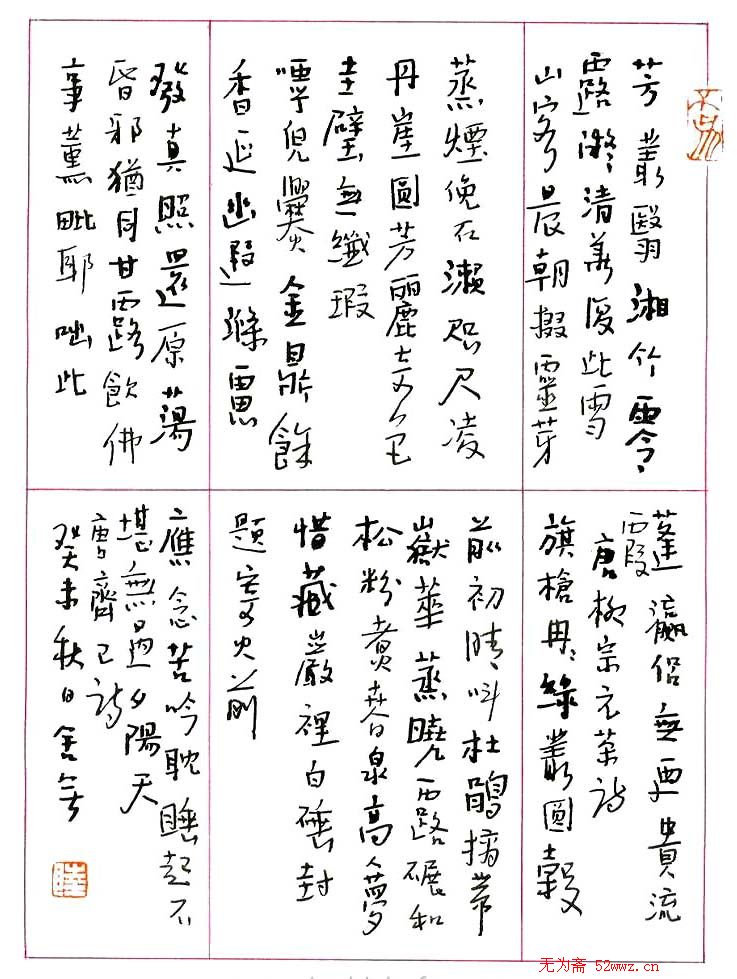 芳叢翳湘竹零
露凝清華復此雪
山客晨朝掇靈芽
蒸煙俛石瀨咫尺凌
丹崖圓芳麗奇色
圭璧無纖瑕
呼兒爨金鼎餘
香延幽遐滌慮
發真照還原蕩
昏邪猶同甘露飲佛
事薰毗耶咄此
蓬瀛侶無要貴流
霞
唐柳宗元茶詩
旗槍冉冉綠叢圓穀
前初晴叫杜鵑摘帶
嶽華蒸曉露碾和
松粉煮春泉高人夢
惜藏巖裡白硾封
題寄火前
應念苦吟耽睡起不
堪無過夕陽天
唐齊己詩
癸未秋日
睦
无为斋 52wwz.cn